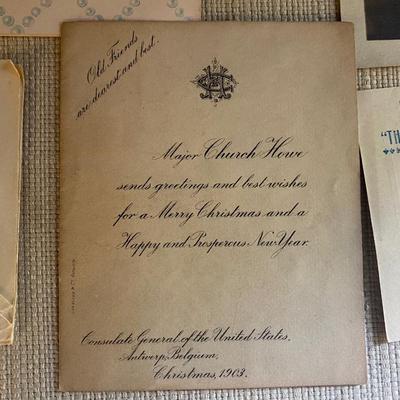 Old Friends
are dearest and best.
Major Church Howe
sends greetings and best wishes
for a Merry Christmas and a
Happy and Prosperous New Year.
Consulate General of the United States,
Antwerp, Belgium,
Christmas, 1903.
"TH